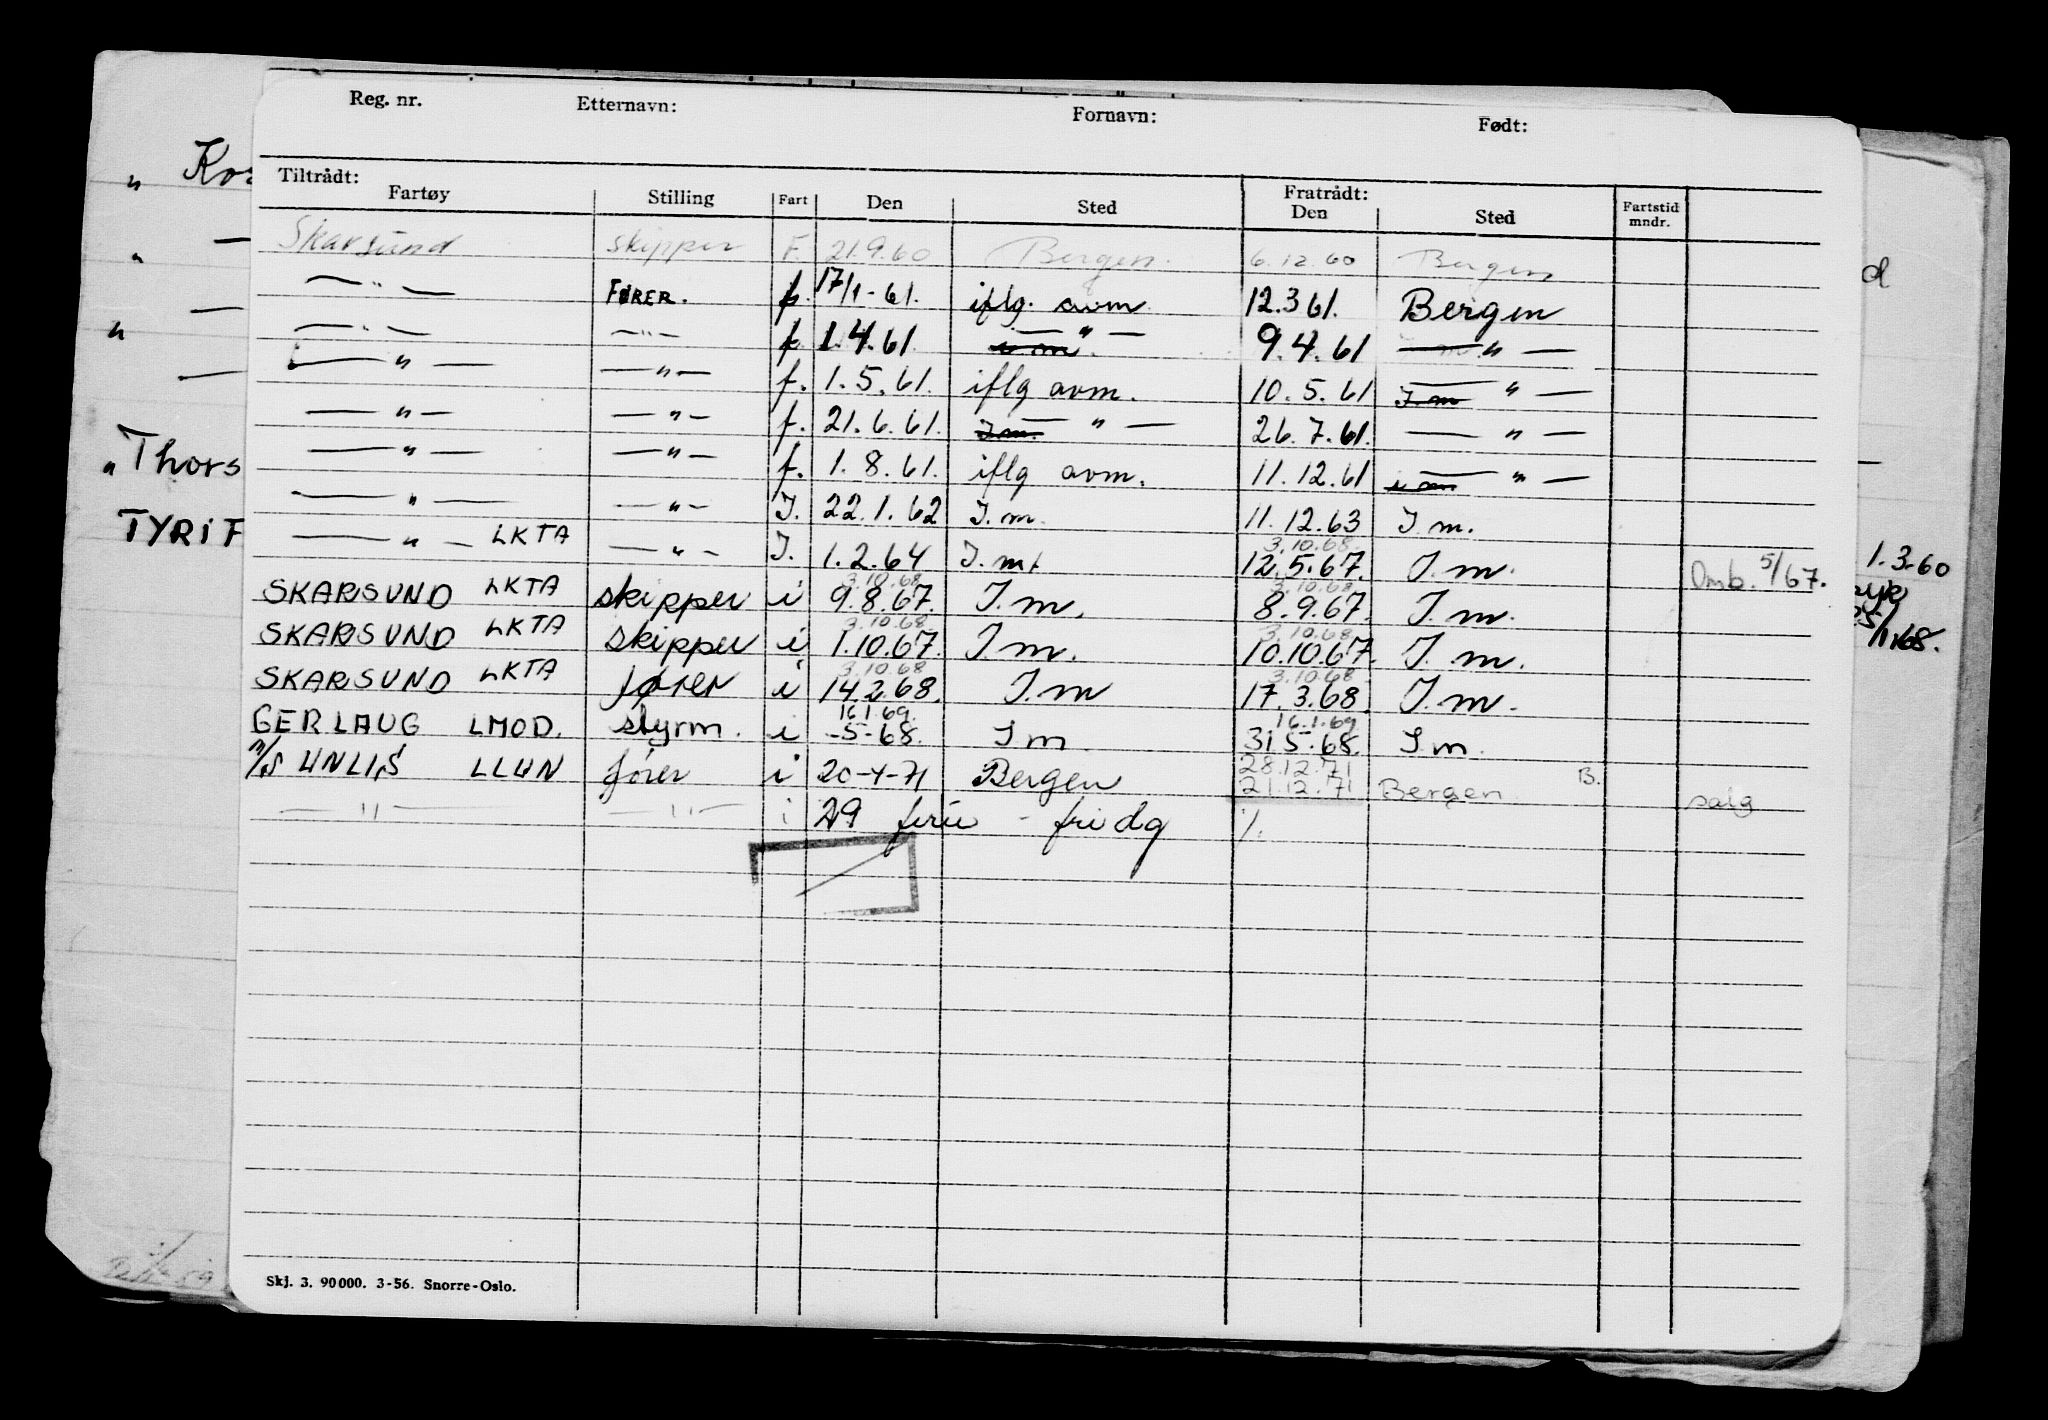 Reg. nr. Etternavn: Fornavn: Født:
Tiltrådt: Fratrådt:
Fartøy Stilling Fart Den Sted Den Sted Fartstid mndr.
Skarsund skipper F. 21.9.60 Bergen. 6.12.60 Bergen
— " — FØRER. f. 17/1-61. iflg. avm 12.3 61. Bergen
— " — — " — f. 1.4.61 — " — 9.4.61 — " —
— " — — " — f. 1.5.61. iflg avm. 10.5.61 — " —
— " — — " — f. 21.6.61. — " — 26.7.61. — " —
— " — — " — f. 1.8.61. iflg avm. 11.12.61 — " —
— " — — " — I. 22.1.62 I.m. 11.12.63 I.m.
3.10.68
— " — LKTA — " — I. 1.2.64 I.m. 12.5.67. I.m. Omb. 5/67.
3.10.68 3.10.68
SKARSUND LKTA skipper i 9.8.67. I.m. 8.9.67. I.m.
3.10.68 3.10.68
SKARSUND LKTA skipper i 1.10.67. I.m. 10.10.67. I.m.
3.10.68 3.10.68
SKARSUND LKTA fører i 14.2.68. I.m 17.3.68. I.m.
16.1.69. 16.1.69
GERLAUG LMOD. styrm. i -5-68. I m 31.5.68. I m.
28.12.71
M/S UNLIS LLUN fører i 20-4-71 Bergen 21.12.71 Bergen. B. salg
— " — — " — i 29 ferie - fridg %.
Skj. 3. 90000. 3-56. Snorre-Oslo.
" Kor
" —
" —
" Thors
TYRIF
d
1.3.60
1/168.